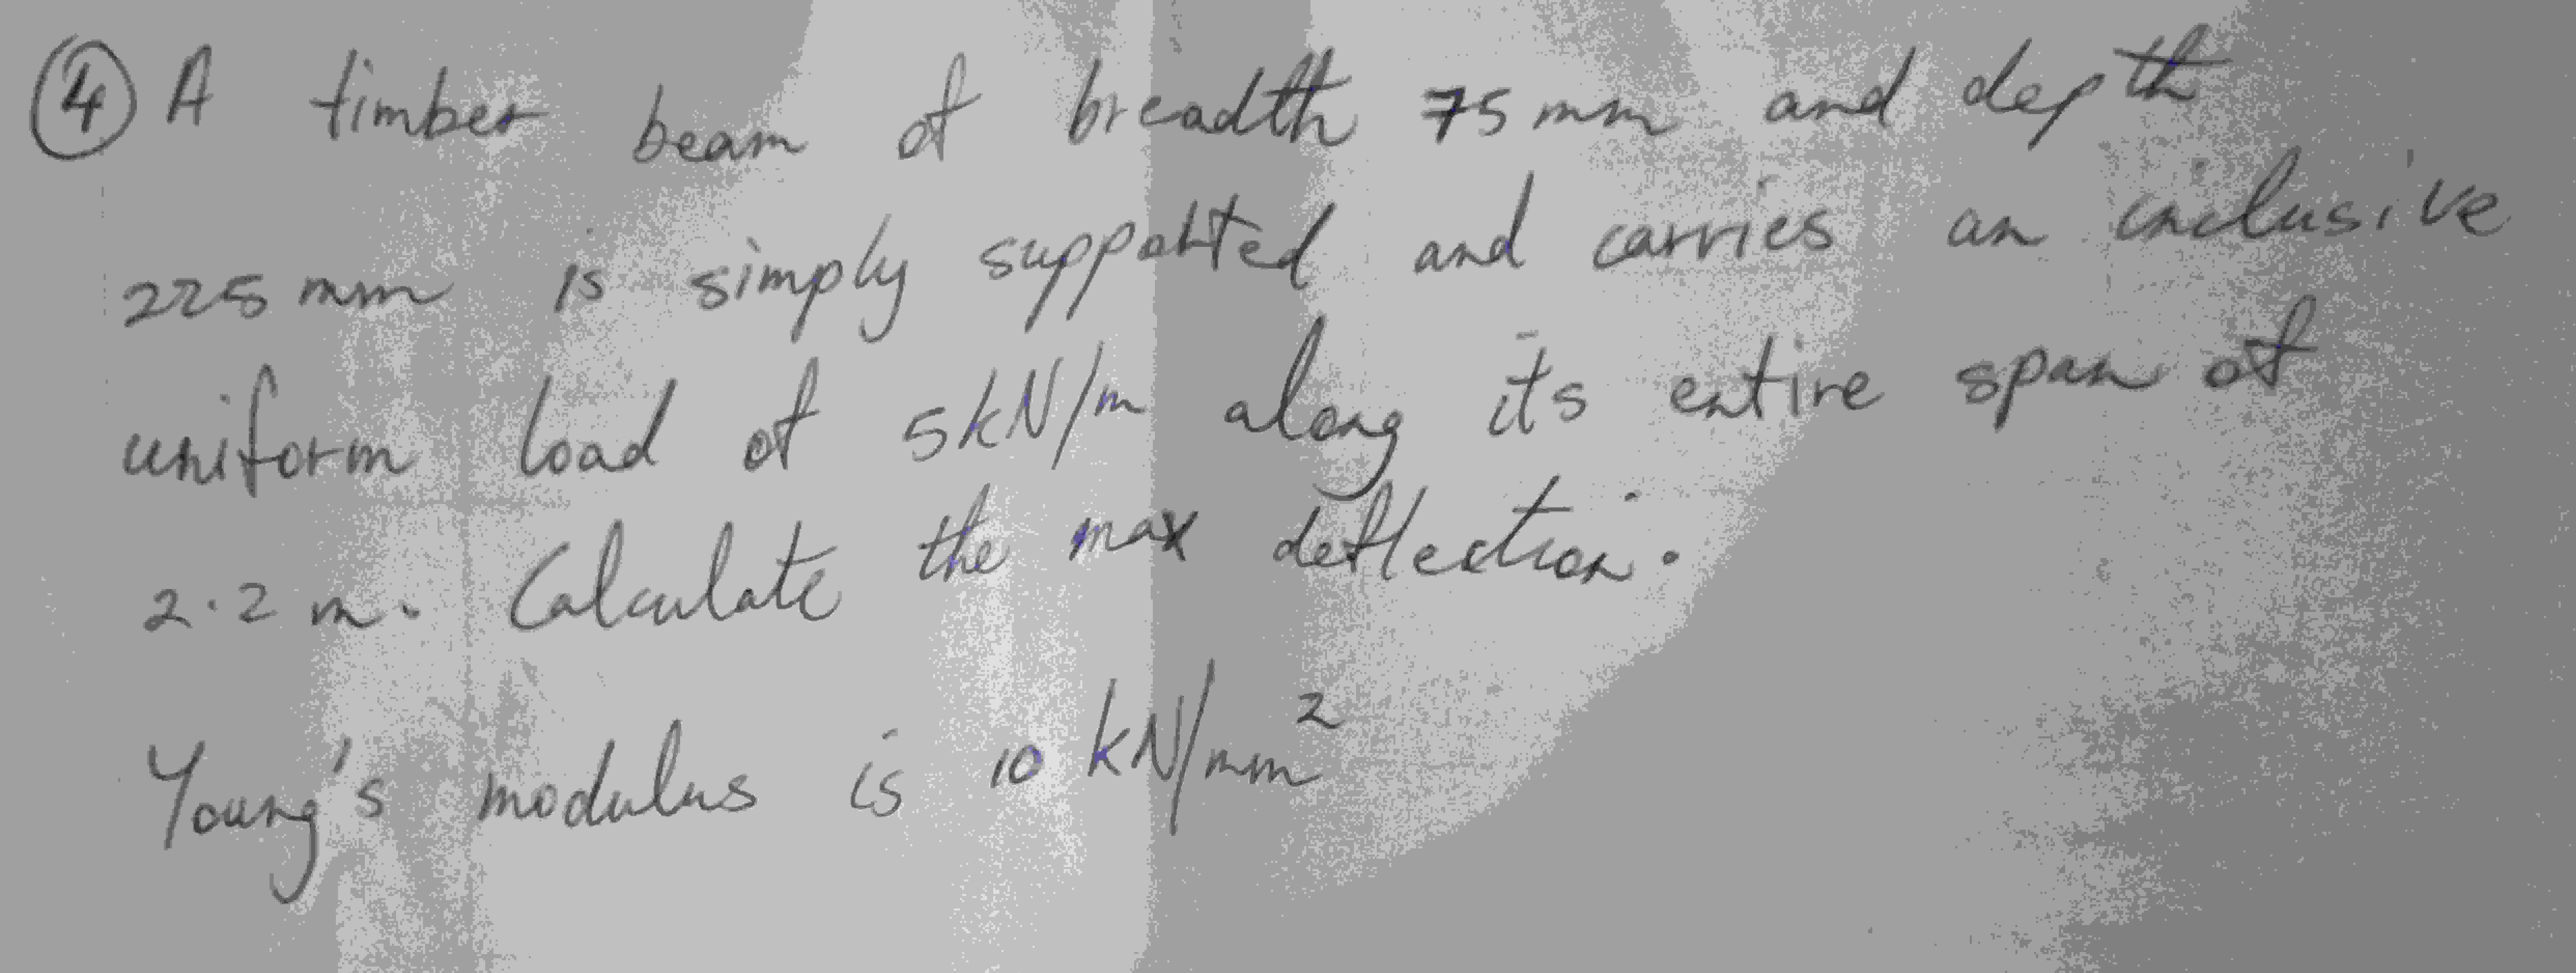 ④ A timber beam of breadth 75 mm and depth
225 mm is simply supported and carries an inclusive
uniform load of 5 kN/m along its entire span of
2.2 m. Calculate the max deflection.
Young's modulus is 10 kN/mm²